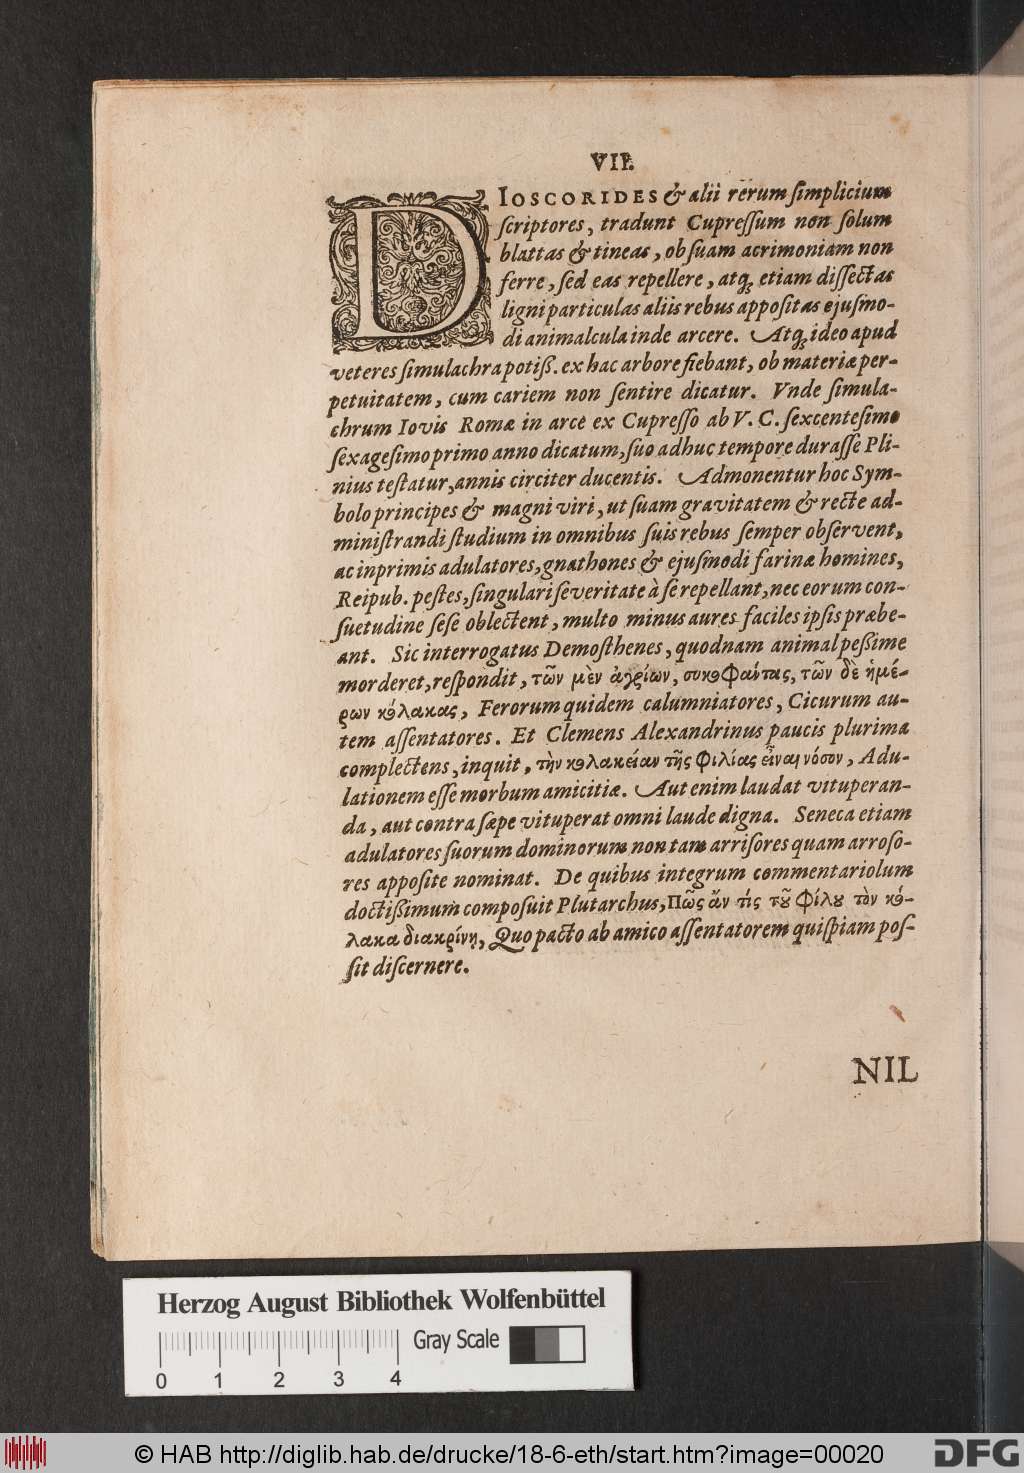 VII.
DIOSCORIDES & alii rerum ſimplicium
ſcriptores, tradunt Cupreſſum non ſolum
blattas & tineas, ob ſuam acrimoniam non
ferre, ſed eas repellere, atq; etiam diſſectas
ligni particulas aliis rebus appoſitas ejuſmo-
di animalcula inde arcere. Atq; ideo apud
veteres ſimulachra potiß. ex hac arbore fiebant, ob materiæ per-
petuitatem, cum cariem non ſentire dicatur. Vnde ſimula-
chrum Iovis Romæ in arce ex Cupreſſo ab V. C. ſexcenteſimo
ſexageſimo primo anno dicatum, ſuo adhuc tempore duraſſe Pli-
nius teſtatur, annis circiter ducentis. Admonentur hoc Sym-
bolo principes & magni viri, ut ſuam gravitatem & recte ad-
miniſtrandi ſtudium in omnibus ſuis rebus ſemper obſervent,
ac inprimis adulatores, gnathones & ejuſmodi farinæ homines,
Reipub. peſtes, ſingulari ſeveritate à ſe repellant, nec eorum con-
ſuetudine ſeſe oblectent, multo minus aures faciles ipſis præbe-
ant. Sic interrogatus Demoſthenes, quodnam animal peßime
morderet, reſpondit, τῶν μὲν ἀγρίων, συκοφάντας, τῶν δὲ ἡμέ-
ρων κόλακας, Ferorum quidem calumniatores, Cicurum au-
tem aſſentatores. Et Clemens Alexandrinus paucis plurima
complectens, inquit, τὴν κολακείαν τῆς φιλίας εἶναι νόσον, Adu-
lationem eſſe morbum amicitiæ. Aut enim laudat vituperan-
da, aut contra ſæpe vituperat omni laude digna. Seneca etiam
adulatores ſuorum dominorum non tam arriſores quam arroſo-
res appoſite nominat. De quibus integrum commentariolum
doctißimum compoſuit Plutarchus, Πῶς ἄν τίς τοῦ φίλου τὸν κό-
λακα διακρίνῃ, Quo pacto ab amico aſſentatorem quiſpiam poſ-
ſit diſcernere.
NIL
Herzog August Bibliothek Wolfenbüttel
Gray Scale
0 1 2 3 4
© HAB http://diglib.hab.de/drucke/18-6-eth/start.htm?image=00020
DFG